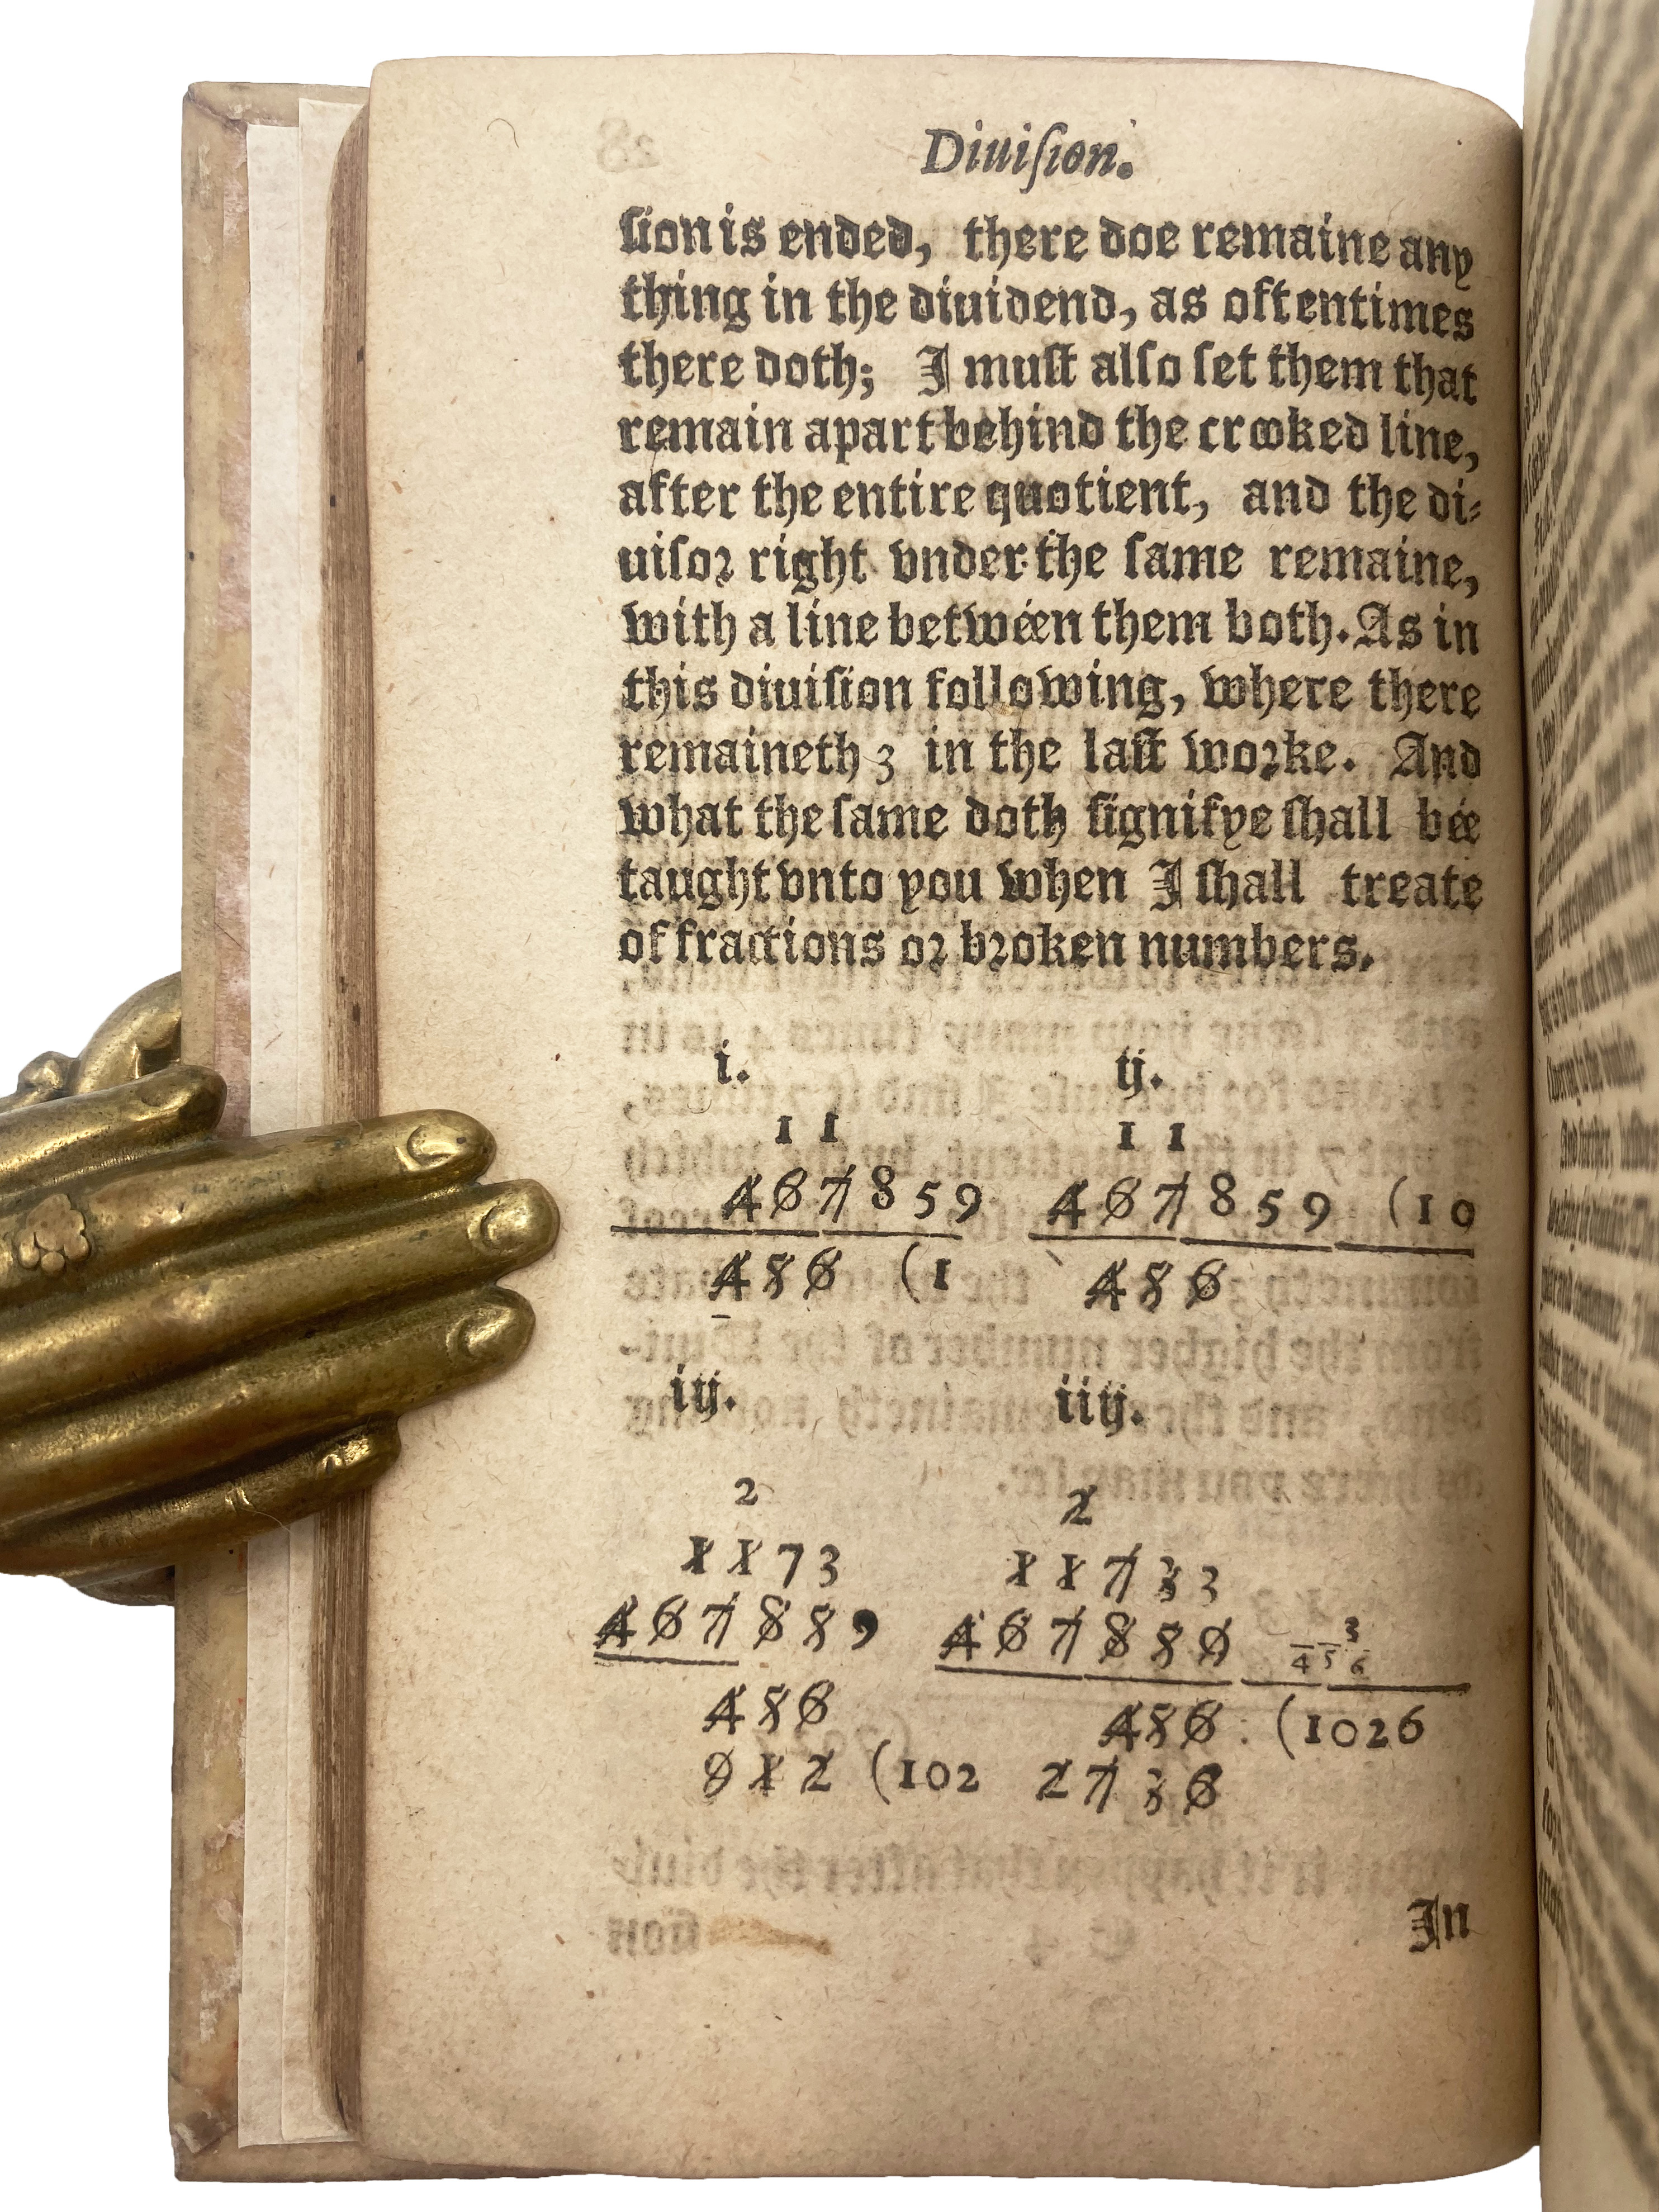 Diuiſion.
ſion is ended, there doe remaine any
thing in the diuidend, as oftentimes
there doth; I muſt alſo ſet them that
remain apart behind the crooked line,
after the entire quotient, and the di-
uiſor right vnder the ſame remaine,
with a line betwéen them both. As in
this diuiſion following, where there
remaineth 3 in the laſt worke. And
what the ſame doth ſignifye ſhall bée
taught vnto you when I ſhall treate
of fractions or broken numbers.
i. ij.
1 1 1 1
4 6 7 8 5 9 4 6 7 8 5 9 (1 0
4 5 6 (1 4 5 6
iij. iiij.
2 2
1 1 7 3 1 1 7 3 3
4 6 7 8 5 9 4 6 7 8 5 9 3
4 5 6
4 5 6 4 5 6 (1026
9 1 2 (102 2 7 3 6
In